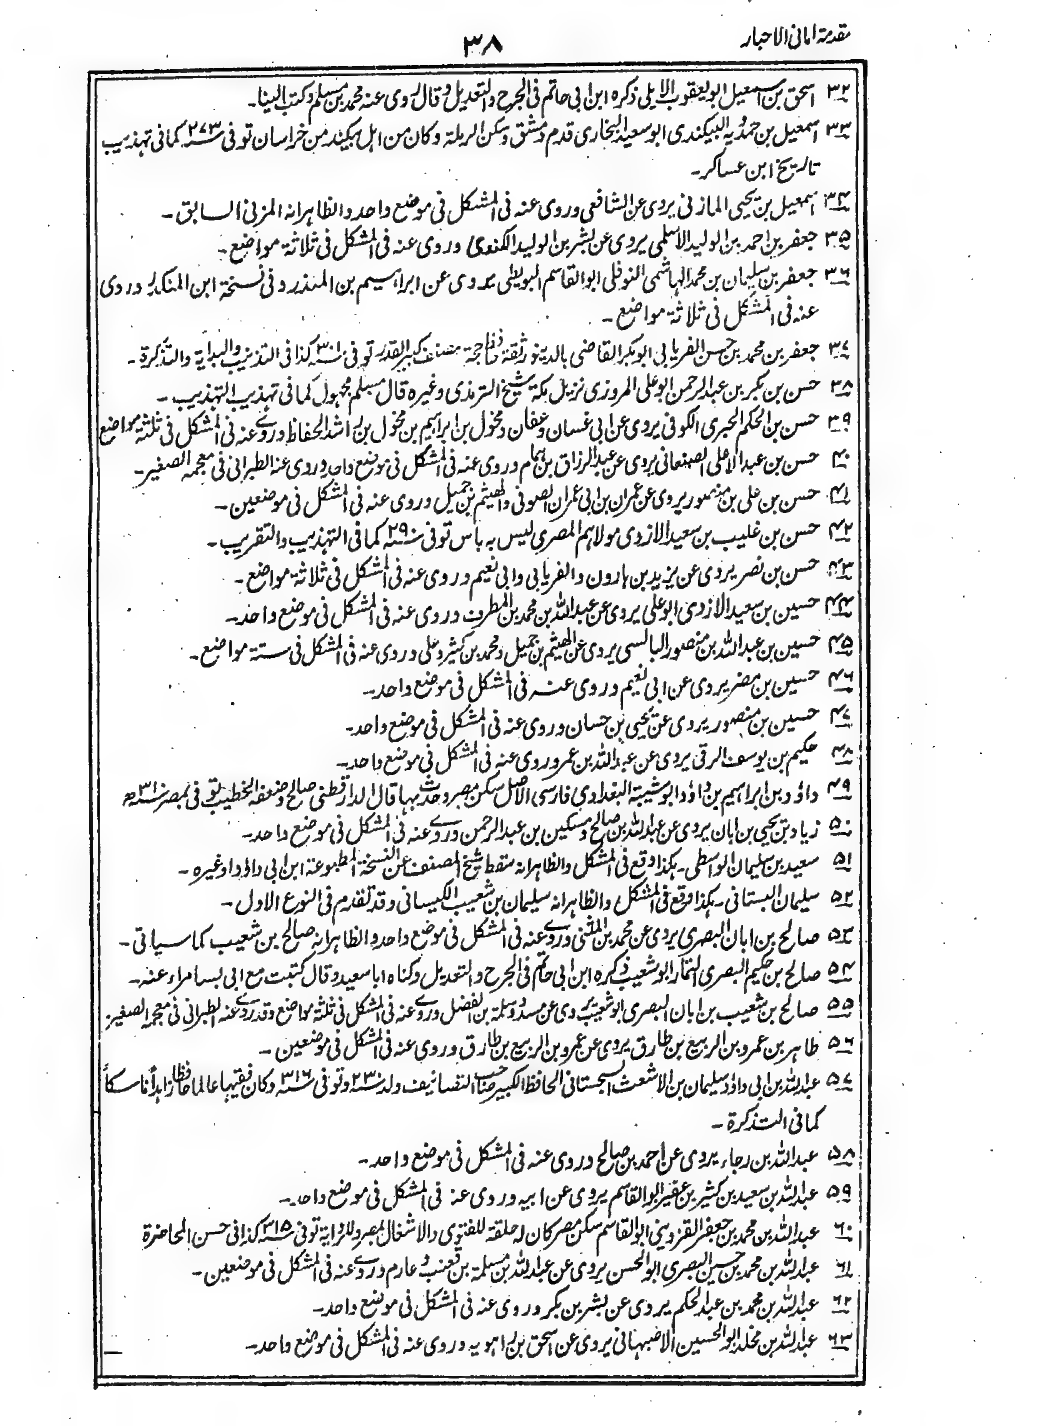 مقدمة امانی الاحبار
٣٨
٣٢ اسحق بن اسمعیل ابو یعقوب الایلی ذکره ابن ابی حاتم فی الجرح والتعدیل وقال روی عنه محمد بن مسلم وکتب الینا۔
٣٣ اسمعیل بن حمدویة البیکندی ابو سعید البخاری قدم دمشق وسکن الرملة وکان من اهل بیکند من خراسان توفی سنة ٢٧٣ کما فی تهذیب
تاریخ ابن عساکر۔
٣٤ اسمعیل بن یحیی المازنی یروی عن الشافعی وروی عنه فی المشکل فی موضع واحد والظاهر انه المزنی السابق۔
٣٥ جعفر بن احمد بن الولید الاسلمی یروی عن بشر بن الولید الکندی وروی عنه فی المشکل فی ثلاثة مواضع۔
٣٦ جعفر بن سلیمان بن محمد الهاشمی النوفلی ابو القاسم البویطی یروی عن ابراهیم بن المنذر وفی نسخة ابن المنکدر وروی
عنه فی المشکل فی ثلاثة مواضع۔
٣٧ جعفر بن محمد بن حسن الفریابی ابو بکر القاضی بالدینور ثقة حافظ حجة مصنف کبیر القدر توفی سنة ٣٠١ کذا فی التذهیب والبدایة والتذکرة۔
٣٨ حسن بن بکر بن عبد الرحمن ابو علی المروزی نزیل مکة شیخ الترمذی وغیره قال مسلم مجهول کما فی تهذیب التهذیب۔
٣٩ حسن بن الحکم الحبری الکوفی یروی عن ابی غسان وعفان ومخول بن ابراهیم بن مخول بن راشد الحفاظ وروی عنه فی المشکل فی ثلثة مواضع
٤٠ حسن بن عبد الاعلی الصنعانی یروی عن عبد الرزاق بن همام وروی عنه فی المشکل فی موضع واحد وروی عنه الطبرانی فی معجمه الصغیر۔
٤١ حسن بن علی بن منصور یروی عن عمران بن ابی عمران الصوفی والهیثم بن جمیل وروی عنه فی المشکل فی موضعین۔
٤٢ حسن بن غلیب بن سعید الازدی مولاهم المصری لیس به باس توفی سنة ٢٩٠ کما فی التهذیب والتقریب۔
٤٣ حسن بن نصر یروی عن یزید بن هارون والفریابی وابی نعیم وروی عنه فی المشکل فی ثلاثة مواضع۔
٤٤ حسین بن سعید الازدی ابو علی یروی عن عبد الله بن محمد بن المطرف وروی عنه فی المشکل فی موضع واحد۔
٤٥ حسین بن عبد الله بن منصور البالسی یروی عن الهیثم بن جمیل ومحمد بن کثیر وعلی وروی عنه فی المشکل فی ستة مواضع۔
٤٦ حسین بن مضر یروی عن ابی نعیم وروی عنه فی المشکل فی موضع واحد۔
٤٧ حسین بن منصور یروی عن یحیی بن حسان وروی عنه فی المشکل فی موضع واحد۔
٤٨ حکیم بن یوسف الرقی یروی عن عبد الله بن عمر وروی عنه فی المشکل فی موضع واحد۔
٤٩ داؤد بن ابراهیم بن داؤد ابو شیبة البغدادی فارسی الاصل سکن مصر وحدث بها قال الدارقطنی صالح وضعفه الخطیب توفی بمصر سنة ٣١٠
٥٠ زیاد بن یحیی بن ابان یروی عن عبد الله بن صالح ومسکین بن عبد الرحمن وروی عنه فی المشکل فی موضع واحد۔
٥١ سعید بن سلیمان الواسطی۔ هکذا وقع فی المشکل والظاهر انه سقط شیخ المصنف عن النسخة المطبوعة ابن ابی داؤد او غیره۔
٥٢ سلیمان البستانی۔ هکذا وقع فی المشکل والظاهر انه سلیمان بن شعیب الکیسانی وقد تقدم فی النوع الاول۔
٥٣ صالح بن ابان البصری یروی عن محمد بن المثنی وروی عنه فی المشکل فی موضع واحد والظاهر انه صالح بن شعیب کما سیاتی۔
٥٤ صالح بن حکیم البصری التمار ابو شعیب ذکره ابن ابی حاتم فی الجرح والتعدیل وکناه ابا سعید وقال کتبت مع ابی بسامراء عنه۔
٥٥ صالح بن شعیب بن ابان البصری ابو شعیب یروی عن مسدد وسلمة بن الفضل وروی عنه فی المشکل فی ثلثة مواضع وقد روی عنه الطبرانی فی معجمه الصغیر
٥٦ طاهر بن عمرو بن الربیع بن طارق یروی عن عمرو بن الربیع بن طارق وروی عنه فی المشکل فی موضعین۔
٥٧ عبد الله بن ابی داؤد سلیمان بن الاشعث السجستانی الحافظ الکبیر صاحب التصانیف ولد سنة ٢٣٠ وتوفی سنة ٣١٦ وکان فقیها عالما حافظا زاهدا ناسکا
کما فی التذکرة۔
٥٨ عبد الله بن رجاء یروی عن احمد بن صالح وروی عنه فی المشکل فی موضع واحد۔
٥٩ عبد الله بن سعید بن کثیر بن عفیر ابو القاسم یروی عن ابیه وروی عنه فی المشکل فی موضع واحد۔
٦٠ عبد الله بن محمد بن جعفر القزوینی ابو القاسم سکن مصر کان له حلقة للفتوی والاشغال بمصر وللروایة توفی سنة ٣١٥ کذا فی حسن المحاضرة
٦١ عبد الله بن محمد بن حسین البصری ابو الحسن یروی عن عبد الله بن مسلمة بن قعنب وعارم وروی عنه فی المشکل فی موضعین۔
٦٢ عبد الله بن محمد بن عبد الحکم یروی عن بشر بن بکر وروی عنه فی المشکل فی موضع واحد۔
٦٣ عبد الله بن مخلد ابو الحسین الاصبهانی یروی عن اسحق بن راهویه وروی عنه فی المشکل فی موضع واحد۔